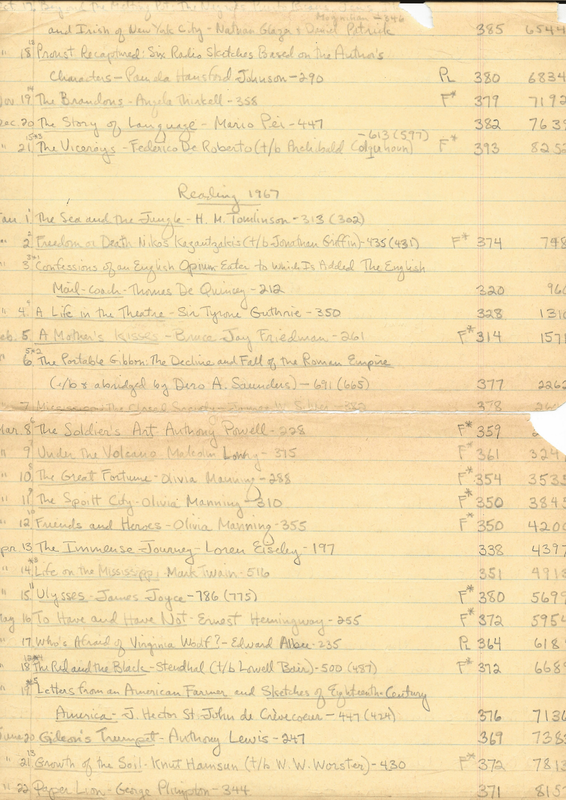 and Irish of New York City - Nathan Glazer & Daniel Patrick 385 6544
" 18 Proust Recaptured: Six Radio Sketches Based on the Author's
Characters - Pamela Hansford Johnson - 290 PL 380 6834
Nov. 19 The Brandons - Angela Thirkell - 358 F* 379 7192
Dec. 20 The Story of Language - Mario Pei - 447 382 7639
- 613 (597)
" 21 The Viceroys - Federico De Roberto (t/b Archibald Colquhoun) F* 393 8252
Reading 1967
Jan. 1. The Sea and the Jungle - H. M. Tomlinson - 313 (302)
" 2. Freedom or Death Nikos Kazantzakis (t/b Jonathan Griffin) - 435 (431) F* 374 748
" 3. Confessions of an English Opium-Eater to Which Is Added The English
Mail-Coach - Thomas De Quincey - 212 320 960
" 4. A Life in the Theatre - Sir Tyrone Guthrie - 350 328 1310
Feb. 5. A Mother's Kisses - Bruce Jay Friedman - 261 F* 314 1571
" 6. The Portable Gibbon: The Decline and Fall of the Roman Empire
(c/b & abridged by Dero A. Saunders) - 691 (665) 377 2262
378
Mar. 8 The Soldier's Art Anthony Powell - 228 F* 359
" 9 Under the Volcano - Malcolm Lowry - 375 F* 361 324
" 10. The Great Fortune - Olivia Manning - 288 F* 354 3535
" 11. The Spoilt City - Olivia Manning - 310 F* 350 3845
" 12. Friends and Heroes - Olivia Manning - 355 F* 350 4200
Apr. 13. The Immense Journey - Loren Eiseley - 197 338 4397
" 14. Life on the Mississippi - Mark Twain - 516 351 4913
" 15. Ulysses - James Joyce - 786 (775) F* 380 5699
May 16. To Have and Have Not - Ernest Hemingway - 255 F* 372 5954
" 17. Who's Afraid of Virginia Woolf? - Edward Albee - 235 PL 364 618
" 18. The Red and the Black - Stendhal (t/b Lowell Bair) - 500 (487) F* 372 668
" 19. Letters from an American Farmer and Sketches of Eighteenth-Century
America - J. Hector St. John de Crèvecoeur - 447 (424) 376 7136
June 20. Gideon's Trumpet - Anthony Lewis - 247 369 738
" 21. Growth of the Soil - Knut Hamsun (t/b W. W. Worster) - 430 F* 372 7813
" 22. Paper Lion - George Plimpton - 344 371 815